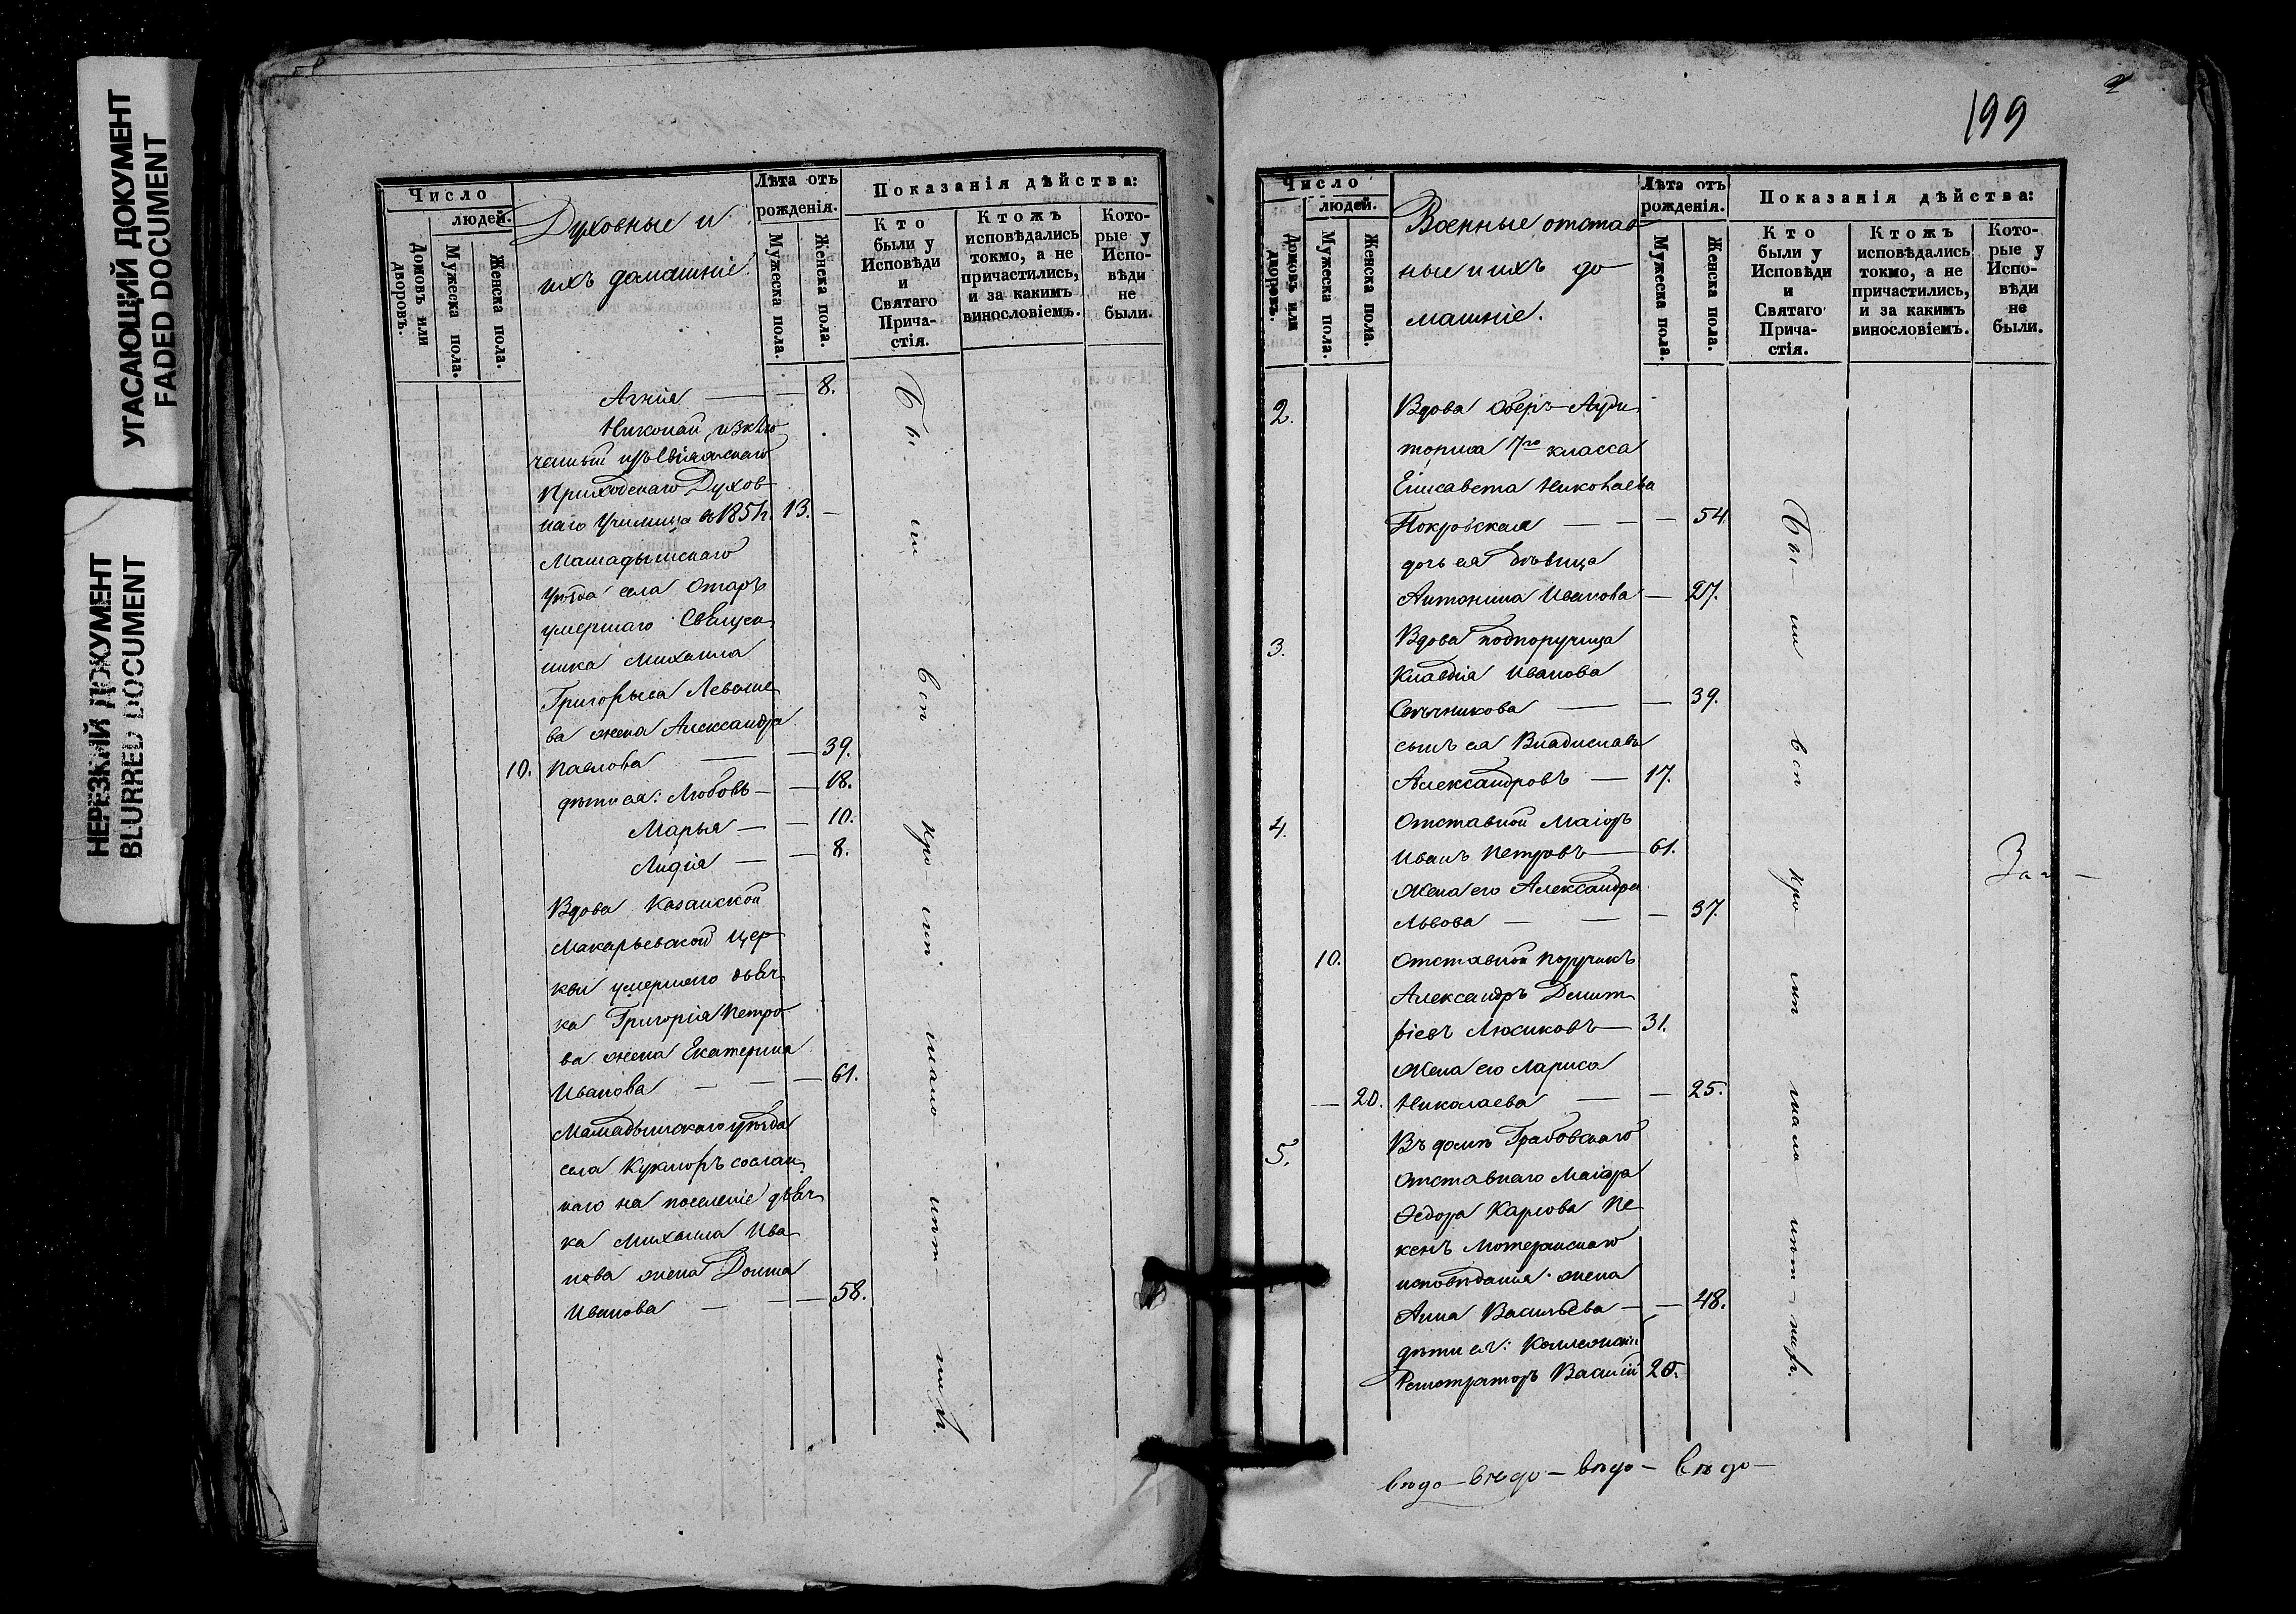 УГАСАЮЩИЙ ДОКУМЕНТ
FADED DOCUMENT
НЕРЕЗКИЙ ДОКУМЕНТ
BLURRED DOCUMENT
Число
людей.
Домовъ или дворовъ.
Мужеска пола.
Женска пола.
Духовные и
ихъ домашніе
Лѣта отъ рожденія.
Мужеска пола.
Женска пола.
Показанія дѣйства:
Кто были у Исповѣди и Святаго Причастія.
Ктожъ исповѣдались токмо, а не причастились, и за какимъ винословіемъ.
Которые у Исповѣди не были.
Агнія — — 8.
Николай, исклю
ченный изъ Свіяжскаго
Приходскаго Духов
наго Училища въ 1857 г. 13. —
Мамадышскаго
уѣзда села Отаръ
умершаго Священ
ника Михаила
Григорьева
ва жена Александра
10. Павлова — — 39.
дѣти ея: Любовь — — 18.
Марья — — 10.
Лидія — — 8.
Вдова Казанской
Макарьевской цер
кви умершаго дьяч
ка Григорія Петро
ва жена Екатерина
Иванова — — — 61.
Мамадышскаго уѣзда
села Кукморъ сослан
наго на поселеніе дьяч
ка Михаила Ива
нова жена Домна
Иванова — — — 58.
199
Число
людей.
Домовъ или дворовъ.
Мужеска пола.
Женска пола.
Военные отстав
ные и ихъ до
машніе.
Лѣта отъ рожденія.
Мужеска пола.
Женска пола.
Показанія дѣйства:
Кто были у Исповѣди и Святаго Причастія.
Ктожъ исповѣдались токмо, а не причастились, и за какимъ винословіемъ.
Которые у Исповѣди не были.
2. Вдова Оберъ-Ауди
торша 7го класса
Елисавета Николаева
Покровская — — — 54.
дочь ея дѣвица
Антонина Иванова — 27.
3. Вдова подпоручица
Клавдія Иванова
— — 39.
сынъ ея Владиславъ
Александровъ — 17.
4. Отставной Маіоръ
Иванъ Петровъ — 61.
Жена его Александра
Львова — — — 37.
10. Отставной Поручикъ
Александръ Дмит
ріевъ — 31.
Жена его Лариса
— 20. Николаева — — 25.
5. Въ домѣ Грабовскаго
Отставнаго Маіора
Ѳедора Карлова
Лютеранскаго
исповѣданія жена
Анна Васильева — — 48.
дѣти ея:
Регистраторъ Василій 20.